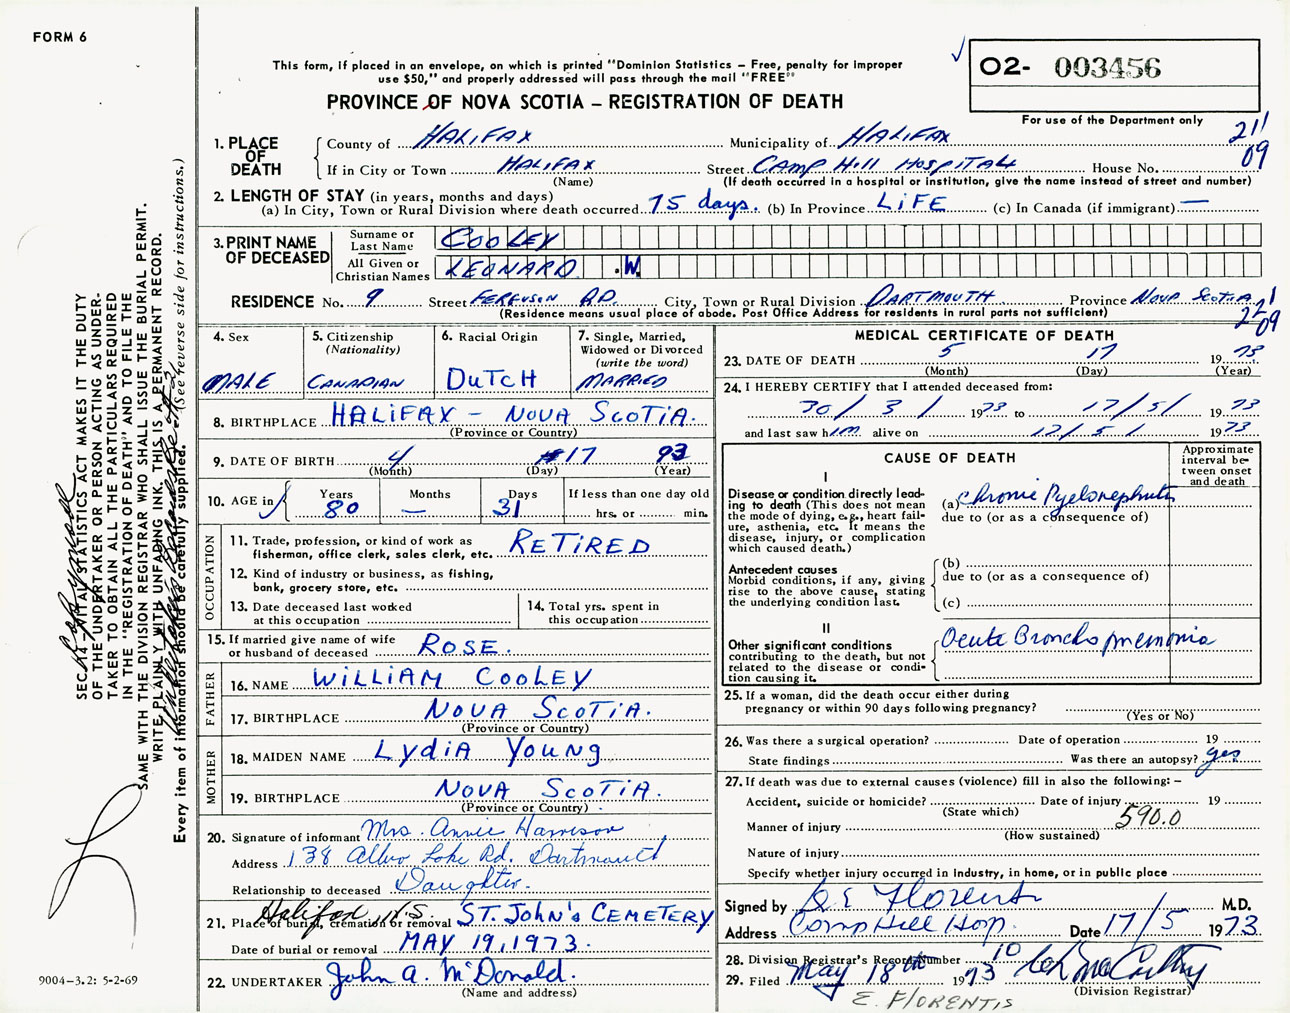 FORM 6
This form, if placed in an envelope, on which is printed "Dominion Statistics – Free, penalty for improper
use $50," and properly addressed will pass through the mail "FREE"
PROVINCE OF NOVA SCOTIA – REGISTRATION OF DEATH
O2- 003456
For use of the Department only
211
09
1. PLACE OF DEATH
County of HALIFAX Municipality of HALIFAX
If in City or Town HALIFAX Street CAMP HILL HOSPITAL House No.
(Name) (If death occurred in a hospital or institution, give the name instead of street and number)
2. LENGTH OF STAY (in years, months and days)
(a) In City, Town or Rural Division where death occurred 75 days. (b) In Province LiFE (c) In Canada (if immigrant) —
3. PRINT NAME OF DECEASED
Surname or Last Name COOLEY
All Given or Christian Names LEONARD .W.
RESIDENCE No. 9 Street FERGUSON RD. City, Town or Rural Division DARTMOUTH Province NOVA SCOTIA
(Residence means usual place of abode. Post Office Address for residents in rural parts not sufficient)
09
4. Sex
MALE
5. Citizenship
(Nationality)
CANADIAN
6. Racial Origin
DUTCH
7. Single, Married,
Widowed or Divorced
(write the word)
MARRIED
8. BIRTHPLACE HALIFAX – NOVA SCOTIA.
(Province or Country)
9. DATE OF BIRTH 4 17 93
(Month) (Day) (Year)
10. AGE in
Years Months Days If less than one day old
80 — 31 hrs. or min.
OCCUPATION
11. Trade, profession, or kind of work as
fisherman, office clerk, sales clerk, etc. RETIRED
12. Kind of industry or business, as fishing,
bank, grocery store, etc.
13. Date deceased last worked
at this occupation
14. Total yrs. spent in
this occupation
15. If married give name of wife
or husband of deceased ROSE.
FATHER
16. NAME WILLIAM COOLEY
17. BIRTHPLACE NOVA SCOTIA.
(Province or Country)
MOTHER
18. MAIDEN NAME LYDIA YOUNG
19. BIRTHPLACE NOVA SCOTIA.
(Province or Country)
20. Signature of informant Mrs. Annie Harrison
Address 138 Albro Lake Rd. Dartmouth
Relationship to deceased Daughter.
Halifax N.S.
21. Place of burial, cremation or removal ST. JOHN'S CEMETERY
Date of burial or removal MAY 19, 1973.
22. UNDERTAKER John A. McDonald.
(Name and address)
MEDICAL CERTIFICATE OF DEATH
23. DATE OF DEATH 5 17 1973
(Month) (Day) (Year)
24. I HEREBY CERTIFY that I attended deceased from:
30/3/ 1973 to 17/5/ 1973
and last saw him alive on 12/5/ 1973
CAUSE OF DEATH
Approximate
interval be-
tween onset
and death
I
Disease or condition directly lead-
ing to death (This does not mean
the mode of dying, e.g., heart fail-
ure, asthenia, etc. It means the
disease, injury, or complication
which caused death.)
(a) Chronic Pyelonephritis
due to (or as a consequence of)
Antecedent causes
Morbid conditions, if any, giving
rise to the above cause, stating
the underlying condition last.
(b)
due to (or as a consequence of)
(c)
II
Other significant conditions
contributing to the death, but not
related to the disease or condi-
tion causing it.
Acute Broncho pneumonia
25. If a woman, did the death occur either during
pregnancy or within 90 days following pregnancy?
(Yes or No)
26. Was there a surgical operation? Date of operation 19
State findings Was there an autopsy? yes
27. If death was due to external causes (violence) fill in also the following: –
Accident, suicide or homicide? Date of injury 19
(State which)
Manner of injury 590.0
(How sustained)
Nature of injury
Specify whether injury occurred in industry, in home, or in public place
Signed by E Florent M.D.
Address Camp Hill Hosp. Date 17/5 1973
28. Division Registrar's Record Number 10
29. Filed May 18th 1973
(Division Registrar)
E. FLORENTIS
SEC. 14 – VITAL STATISTICS ACT MAKES IT THE DUTY
OF THE UNDERTAKER OR PERSON ACTING AS UNDER-
TAKER TO OBTAIN ALL THE PARTICULARS REQUIRED
IN THE "REGISTRATION OF DEATH" AND TO FILE THE
SAME WITH THE DIVISION REGISTRAR WHO SHALL ISSUE THE BURIAL PERMIT.
WRITE PLAINLY WITH UNFADING INK. THIS IS A PERMANENT RECORD.
Every item of information should be carefully supplied. (See reverse side for instructions.)
9004–3.2: 5-2-69